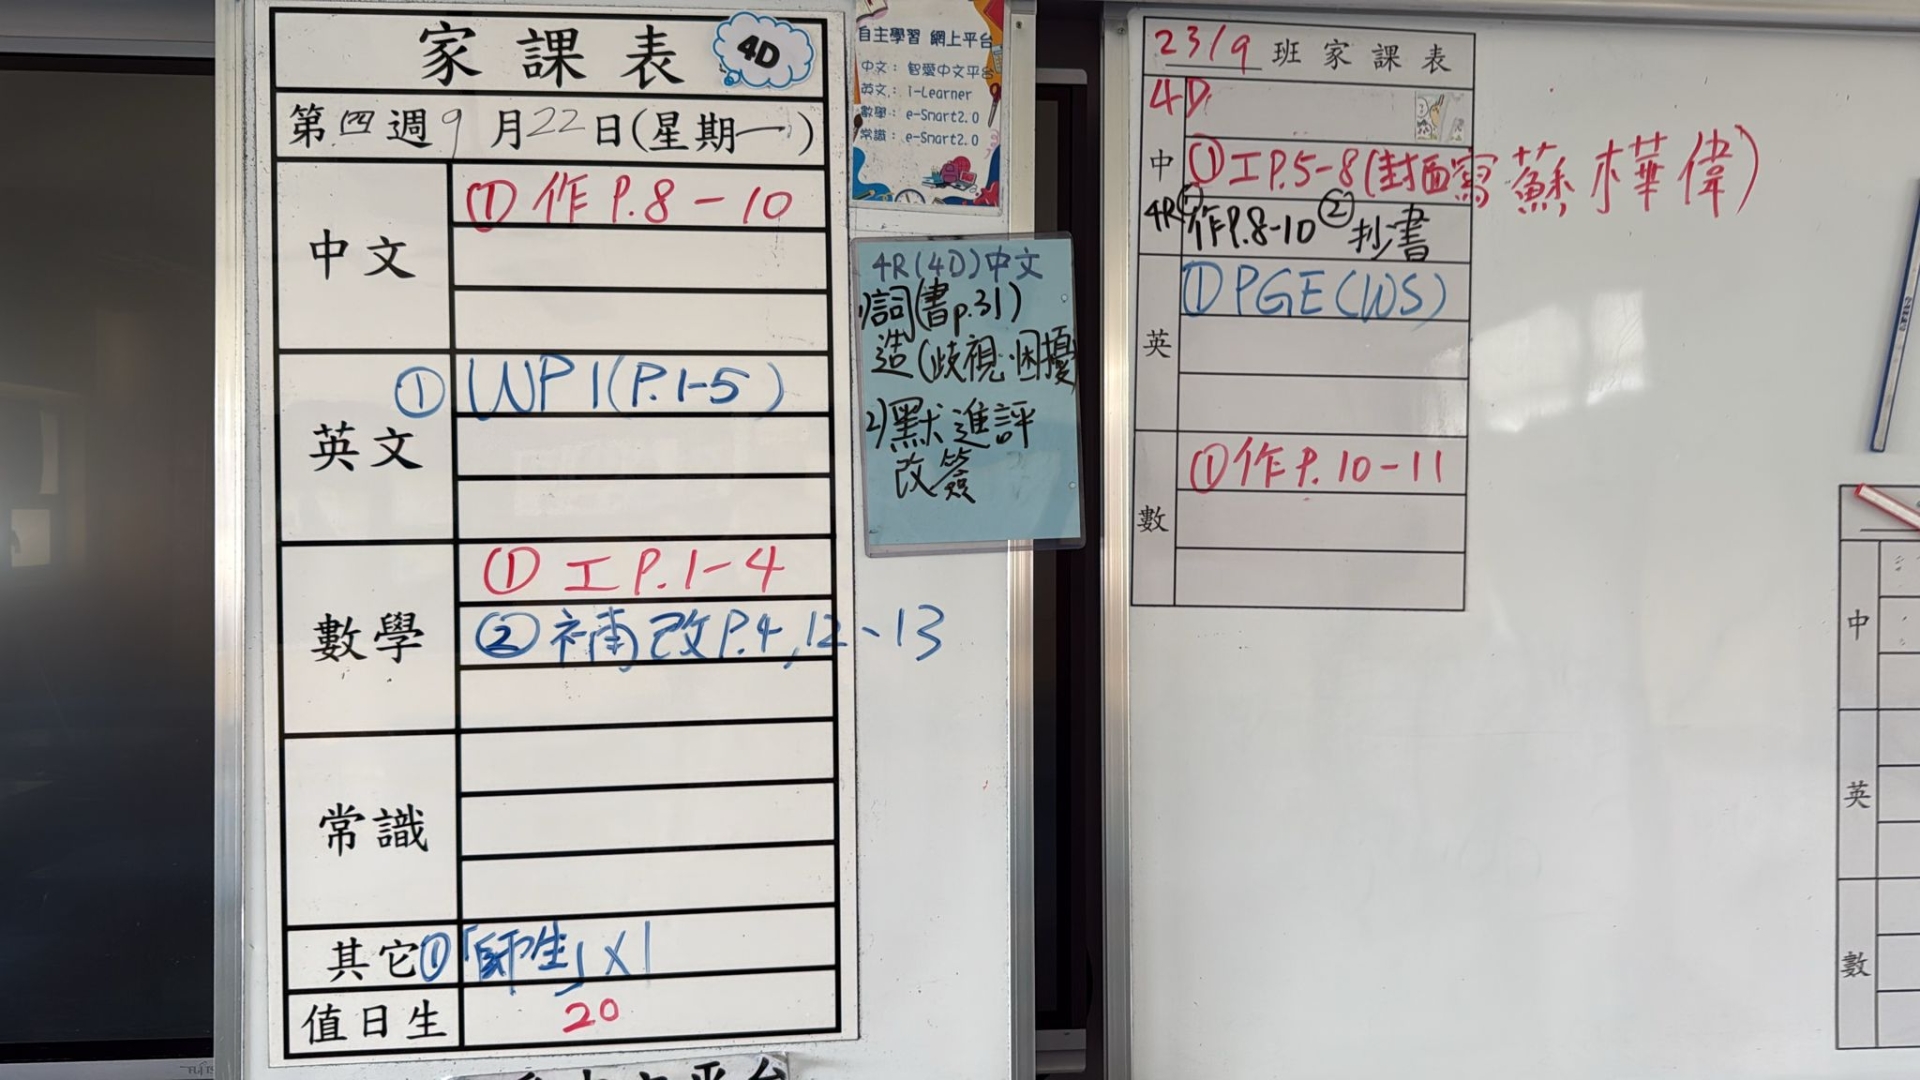 家課表 4D
第四週9月22日(星期一)
中文
①作P.8-10
英文
①WP1(P.1-5)
數學
①工P.1-4
②補改P.4,12、13
常識
其它
①「師生」x1
值日生
20
自主學習 網上平台
中文： 智愛中文平台
英文： i-Learner
數學： e-Smart2.0
常識： e-Smart2.0
4R(4D)中文
1)詞(書p.31)
造(歧視、困擾)
2)默進評
改簽
23/9 班家課表
4D
中
①工P.5-8(封面寫蘇樺偉)
4R①作P.8-10 ②抄書
英
①PGE(WS)
數
①作P.10-11
中
英
數